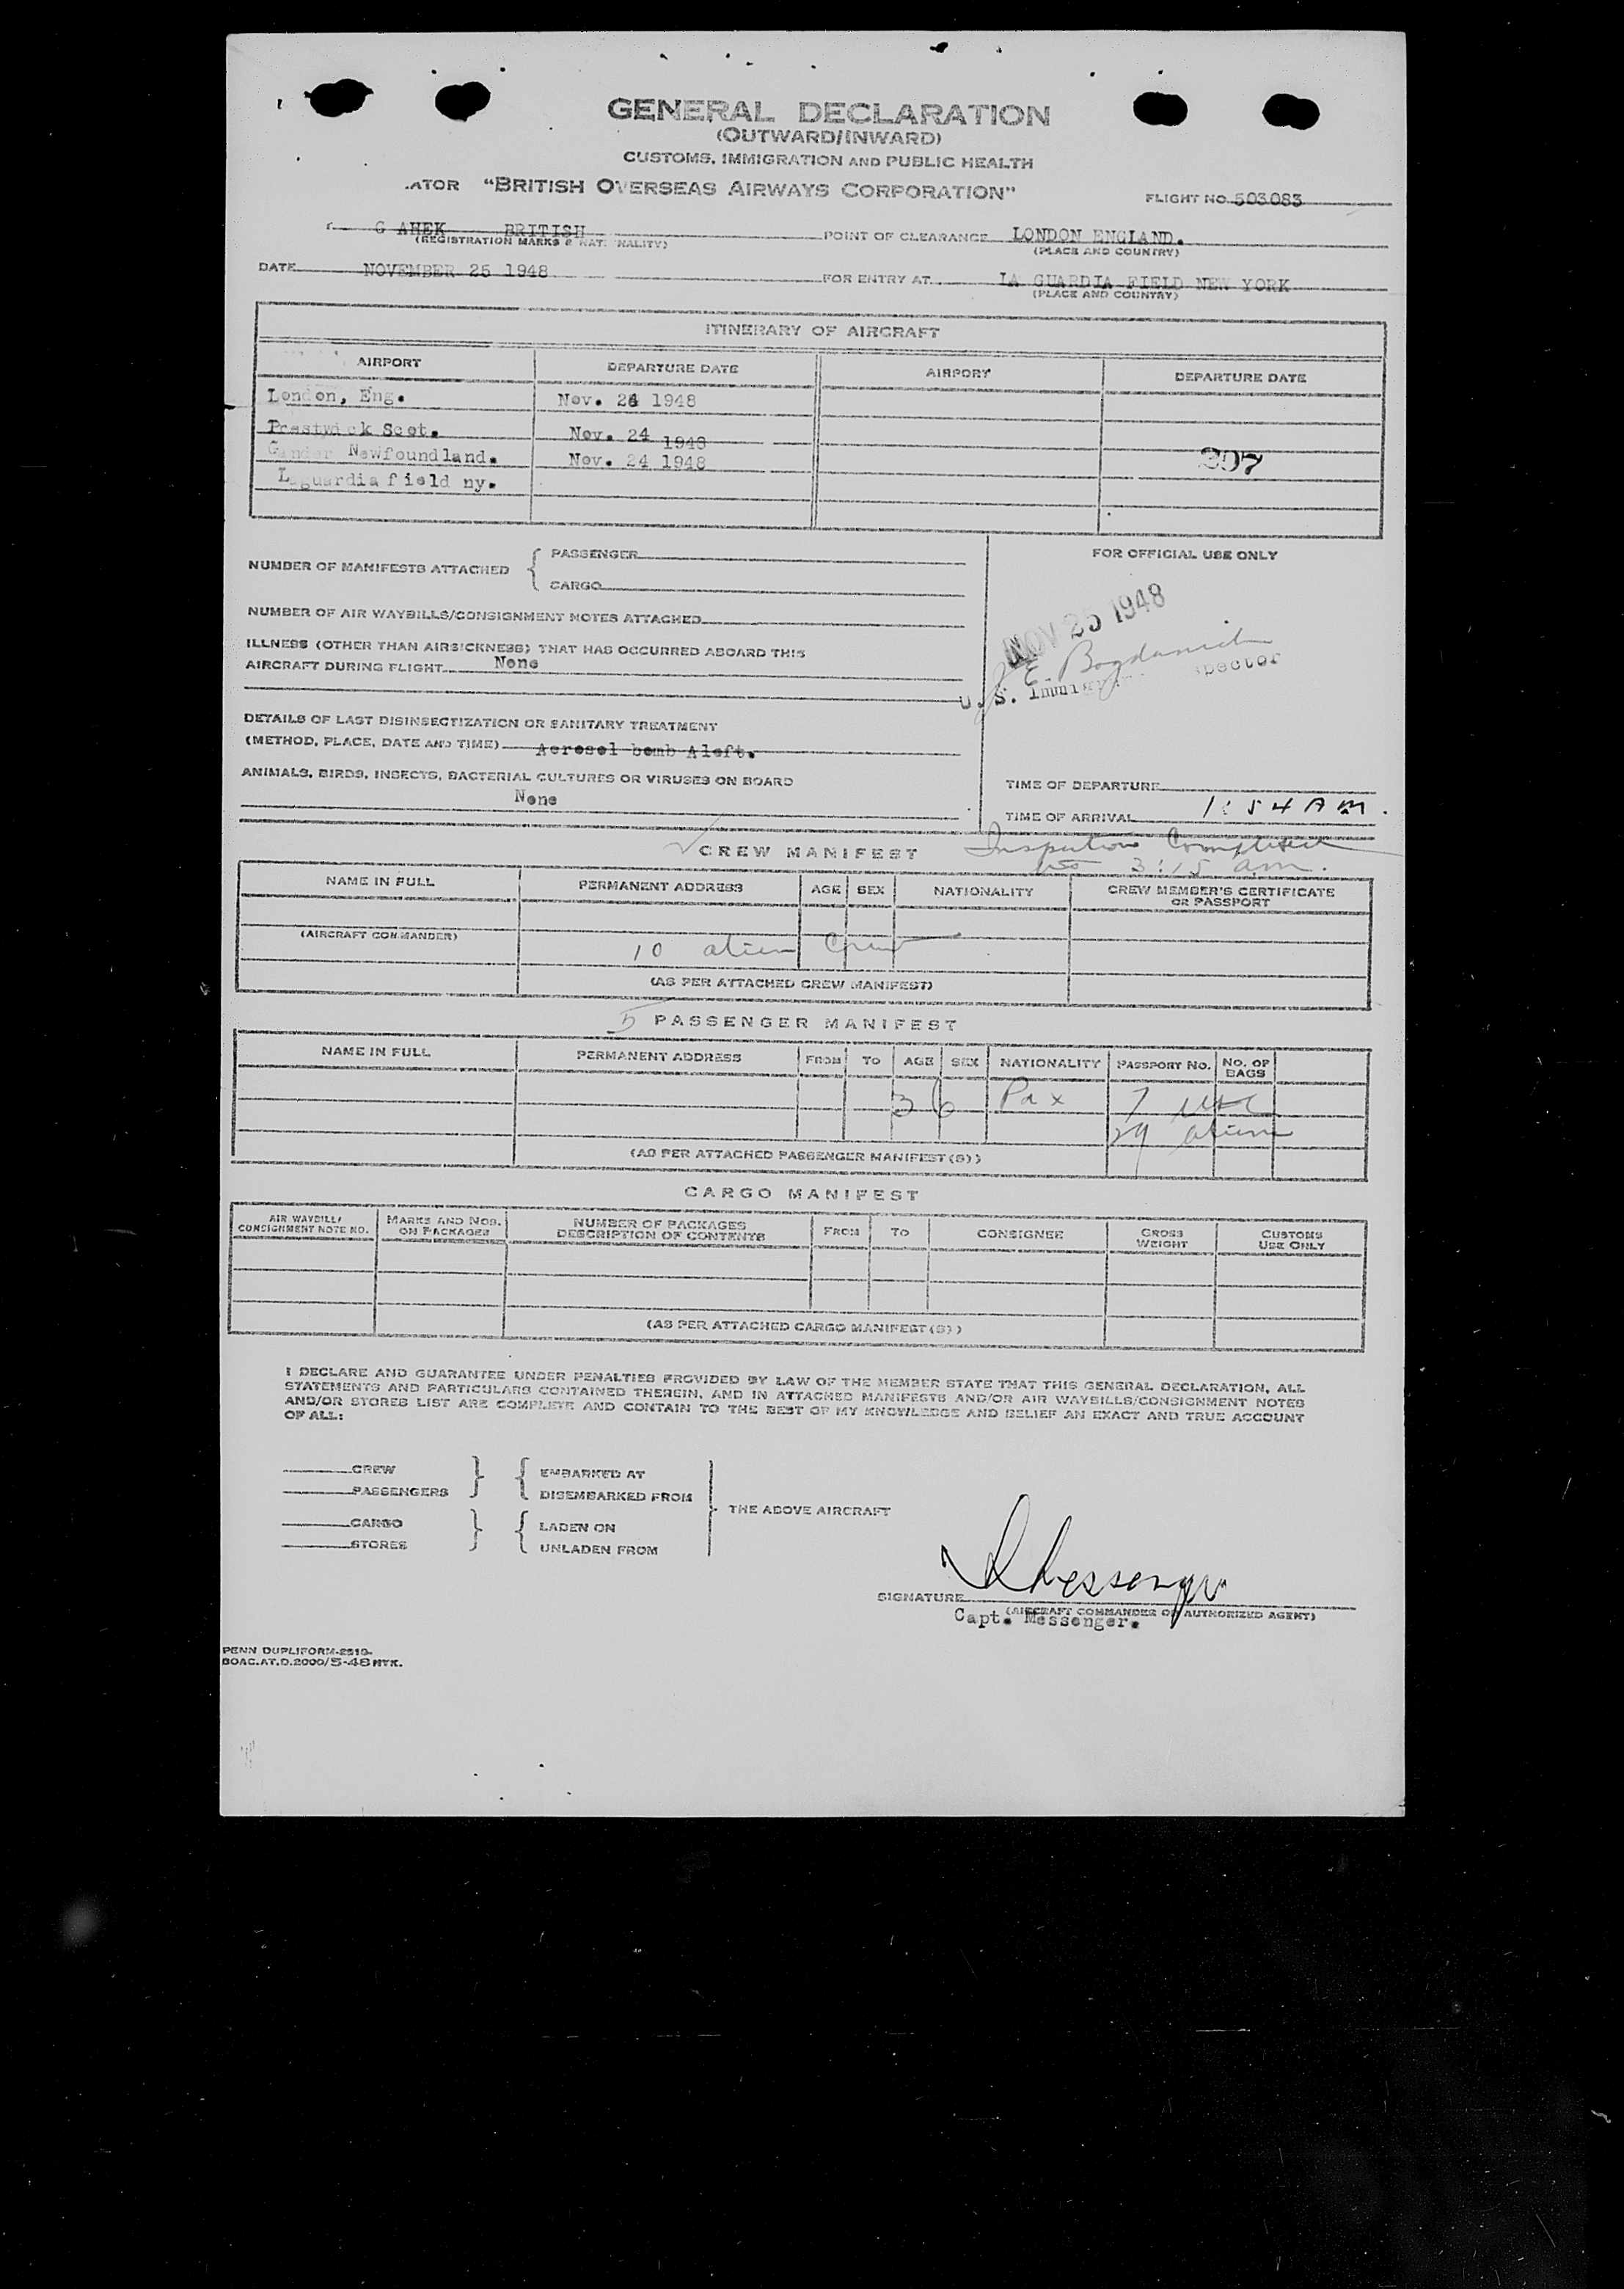 GENERAL DECLARATION
(OUTWARD/INWARD)
CUSTOMS, IMMIGRATION AND PUBLIC HEALTH
ATOR "BRITISH OVERSEAS AIRWAYS CORPORATION"
FLIGHT NO. 503083
G AHEK BRITISH
(REGISTRATION MARKS & NATIONALITY)
POINT OF CLEARANCE LONDON ENGLAND.
(PLACE AND COUNTRY)
DATE NOVEMBER 25 1948
FOR ENTRY AT LA GUARDIA FIELD NEW YORK
(PLACE AND COUNTRY)
ITINERARY OF AIRCRAFT
AIRPORT DEPARTURE DATE AIRPORT DEPARTURE DATE
London, Eng. Nov. 24 1948
Prestwick Scot. Nov. 24 1948
Gander Newfoundland. Nov. 24 1948
297
Laguardia field ny.
NUMBER OF MANIFESTS ATTACHED { PASSENGER
CARGO
FOR OFFICIAL USE ONLY
NUMBER OF AIR WAYBILLS/CONSIGNMENT NOTES ATTACHED
NOV 25 1948
ILLNESS (OTHER THAN AIRSICKNESS) THAT HAS OCCURRED ABOARD THIS
AIRCRAFT DURING FLIGHT None
E. Bogdanich
U. S. Immig spector
DETAILS OF LAST DISINSECTIZATION OR SANITARY TREATMENT
(METHOD, PLACE, DATE AND TIME) Aerosel bomb Aloft.
ANIMALS, BIRDS, INSECTS, BACTERIAL CULTURES OR VIRUSES ON BOARD
None
TIME OF DEPARTURE
TIME OF ARRIVAL 1:54 AM.
Inspection Completed
3:15 a.m.
CREW MANIFEST
NAME IN FULL PERMANENT ADDRESS AGE SEX NATIONALITY CREW MEMBER'S CERTIFICATE OR PASSPORT
(AIRCRAFT COMMANDER)
10 alien Crew
(AS PER ATTACHED CREW MANIFEST)
5 PASSENGER MANIFEST
NAME IN FULL PERMANENT ADDRESS FROM TO AGE SEX NATIONALITY PASSPORT NO. NO. OF BAGS
36 Pax 7 USC
29 aliens
(AS PER ATTACHED PASSENGER MANIFEST(S))
CARGO MANIFEST
AIR WAYBILL/ CONSIGNMENT NOTE NO. MARKS AND NOS. ON PACKAGES NUMBER OF PACKAGES DESCRIPTION OF CONTENTS FROM TO CONSIGNEE GROSS WEIGHT CUSTOMS USE ONLY
(AS PER ATTACHED CARGO MANIFEST(S))
I DECLARE AND GUARANTEE UNDER PENALTIES PROVIDED BY LAW OF THE MEMBER STATE THAT THIS GENERAL DECLARATION, ALL
STATEMENTS AND PARTICULARS CONTAINED THEREIN, AND IN ATTACHED MANIFESTS AND/OR AIR WAYBILLS/CONSIGNMENT NOTES
AND/OR STORES LIST ARE COMPLETE AND CONTAIN TO THE BEST OF MY KNOWLEDGE AND BELIEF AN EXACT AND TRUE ACCOUNT
OF ALL:
CREW } { EMBARKED AT
PASSENGERS DISEMBARKED FROM
THE ABOVE AIRCRAFT
CARGO } { LADEN ON
STORES UNLADEN FROM
SIGNATURE Messenger
(AIRCRAFT COMMANDER OR AUTHORIZED AGENT)
Capt. Messenger.
PENN DUPLIFORM-2510-
BOAC.AT.D.2000/5-48 NYK.